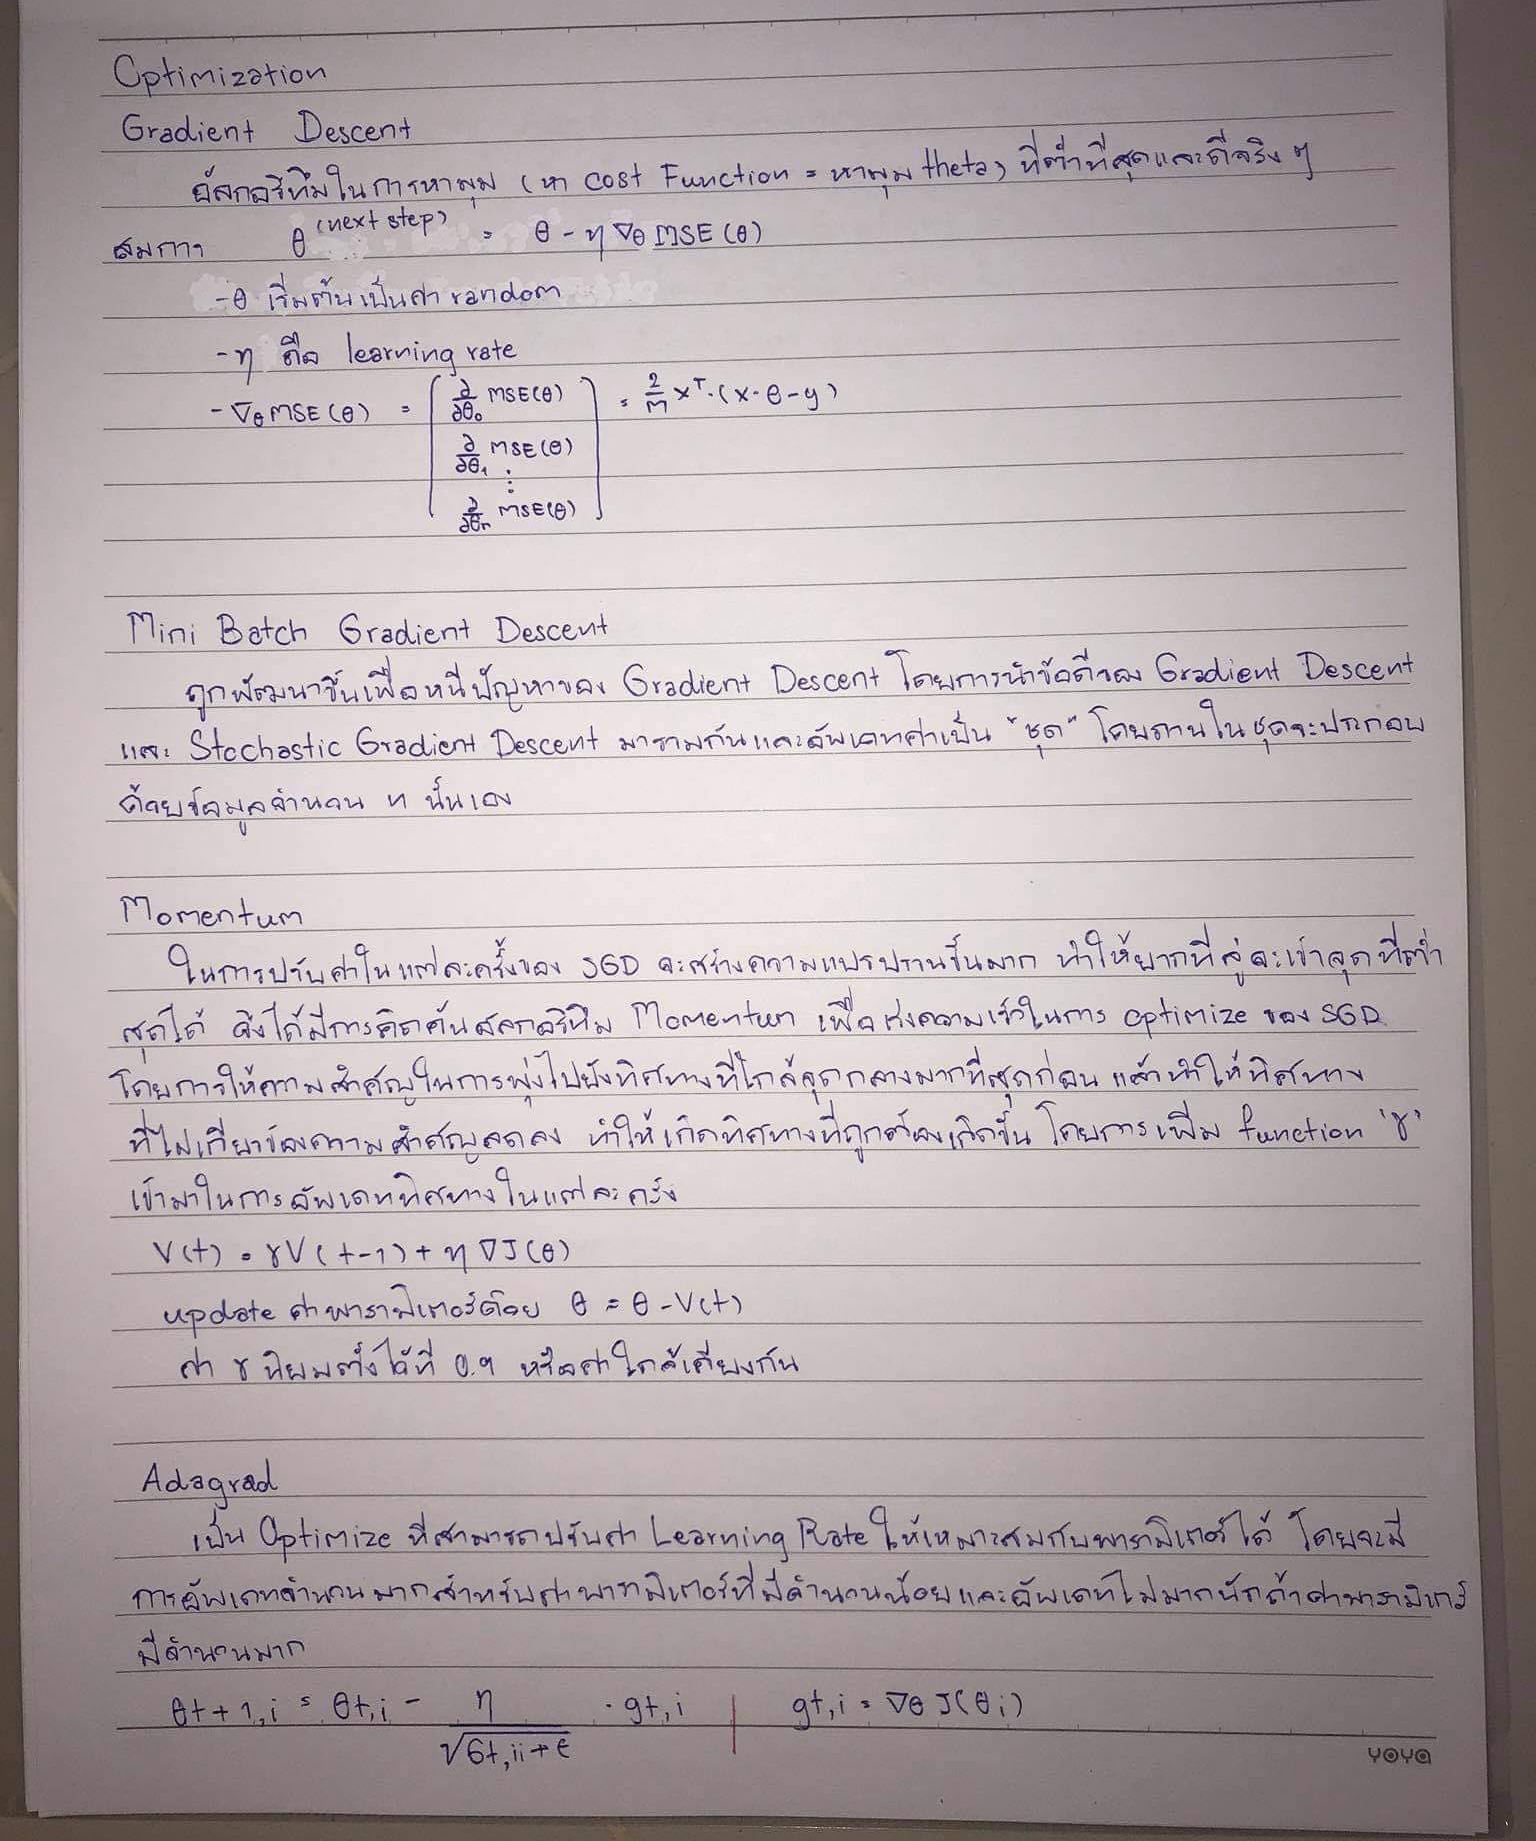 Optimization
Gradient Descent
อัลกอริทึมในการหามุม (หา cost Function = หามุม theta) ที่ต่ำที่สุดและดีจริง ๆ
สมการ θ^(next step) = θ - η ∇θ MSE(θ)
- θ เริ่มต้นเป็นค่า random
- η คือ learning rate
- ∇θ MSE(θ) = [ ∂/∂θ₀ MSE(θ) ] = 2/m X^T · (X · θ - y)
∂/∂θ₁ MSE(θ)
⋮
∂/∂θn MSE(θ)
Mini Batch Gradient Descent
ถูกพัฒนาขึ้นเพื่อหนีปัญหาของ Gradient Descent โดยการนำข้อดีของ Gradient Descent
และ Stochastic Gradient Descent มารวมกันและอัพเดทค่าเป็น "ชุด" โดยภายในชุดจะประกอบ
ด้วยข้อมูลจำนวน n นั่นเอง
Momentum
ในการปรับค่าในแต่ละครั้งของ SGD จะสร้างความแปรปรวนขึ้นมาก ทำให้ยากที่สู่จะเข้าจุดที่ต่ำ
สุดได้ จึงได้มีการคิดค้นอัลกอริทึม Momentum เพื่อเร่งความเร็วในการ optimize ของ SGD
โดยการให้ความสำคัญในการพุ่งไปยังทิศทางที่ใกล้จุดกลางมากที่สุดก่อน แล้วทำให้ทิศทาง
ที่ไม่เกี่ยวข้องความสำคัญลดลง ทำให้เกิดทิศทางที่ถูกต้องเกิดขึ้น โดยการเพิ่ม function 'γ'
เข้ามาในการอัพเดททิศทางในแต่ละครั้ง
V(t) = γV(t-1) + η ∇J(θ)
update ค่าพารามิเตอร์ด้วย θ = θ - V(t)
ค่า γ นิยมตั้งไว้ที่ 0.9 หรือค่าใกล้เคียงกัน
Adagrad
เป็น Optimize ที่สามารถปรับค่า Learning Rate ให้เหมาะสมกับพารามิเตอร์ได้ โดยจะมี
การอัพเดทจำนวนมากสำหรับค่าพารามิเตอร์ที่มีจำนวนน้อยและอัพเดทไม่มากนักถ้าค่าพารามิเตอร์
มีจำนวนมาก
θt+1,i = θt,i - η/√(Gt,ii + ϵ) · gt,i | gt,i = ∇θ J(θi)
yoya